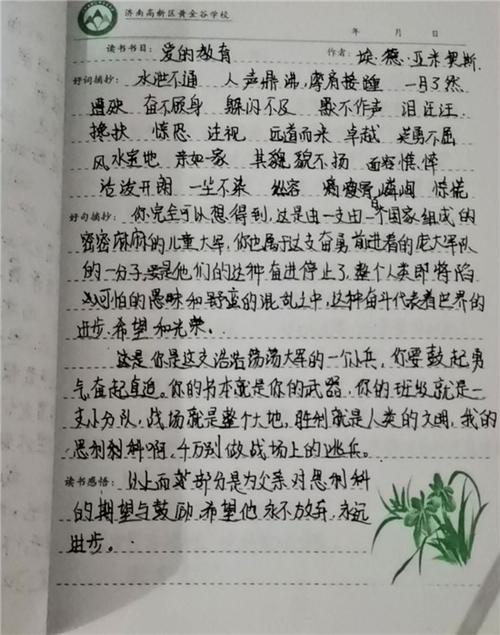 济南高新区黄金谷学校
年 月 日
读书书目: 爱的教育 作者: 埃·德·亚米契斯.
好词摘抄: 水泄不通 人声鼎沸, 摩肩接踵 一目了然
遭殃 奋不顾身 躲闪不及 默不作声 泪汪汪
搀扶 惊恐 注视 远道而来 卓越 英勇不屈
风水宝地 亲如一家 其貌不扬 面容憔悴
沧波开阔 一尘不染 从容 瘦骨嶙峋 惊慌
好句摘抄: 你完全可以想得到,这是由一支由一个国家组成的
密密麻麻的儿童大军,你也属于这支奋勇前进着的庞大军队
的一分子.要是他们的这种奋进停止了,整个人类即将陷
入可怕的愚昧和野蛮的混乱之中,这种奋斗代表着世界的
进步.希望和光荣.
这是你是这支浩浩荡荡大军的一个小兵,你要鼓起勇
气奋起直追。你的书本就是你的武器.你的班级就是一
支小分队,战场就是整个大地,胜利就是人类的文明,我的
恩利科啊,千万别做战场上的逃兵。
读书感悟: 以上两部分是为父亲对恩利科
的期望与鼓励.希望他永不放弃,永远
进步。